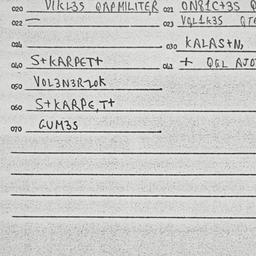 020 VIKL3S QAPMILITER 021 ON81C+3S
022 023 VQL1K3S
024 030 KALAS+N,
040 S+KARPET+ 042 + QGL AJO
050 VOL3N3R20K
060 S+KARPE,T+
070 GUM3S